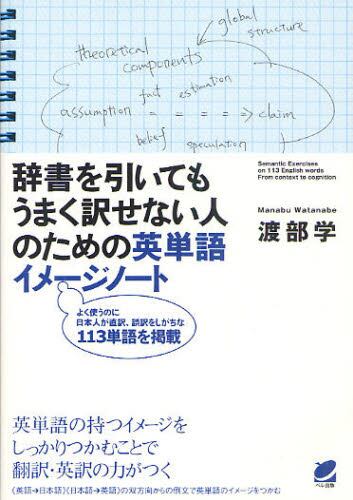 global
structure
theoretical
components
fact estimation
assumption = = = => claim
belief speculation
Semantic Exercises
on 113 English words
From context to cognition
辞書を引いても
うまく訳せない人
のための英単語
イメージノート
Manabu Watanabe
渡部学
よく使うのに
日本人が直訳、誤訳をしがちな
113単語を掲載
英単語の持つイメージを
しっかりつかむことで
翻訳・英訳の力がつく
〈英語→日本語〉〈日本語→英語〉の双方向からの例文で英単語のイメージをつかむ
ベレ出版